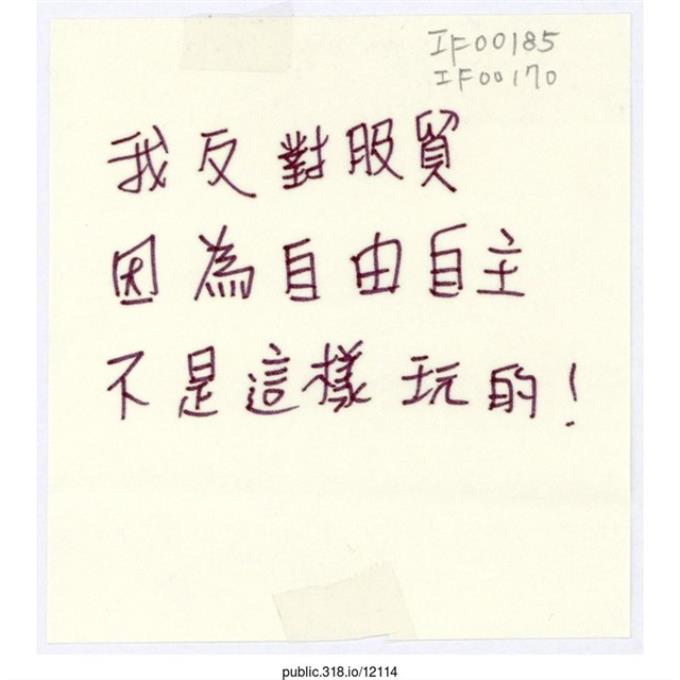 IF00185
IF00170
我反對服貿
因為自由自主
不是這樣玩的!
public.318.io/12114